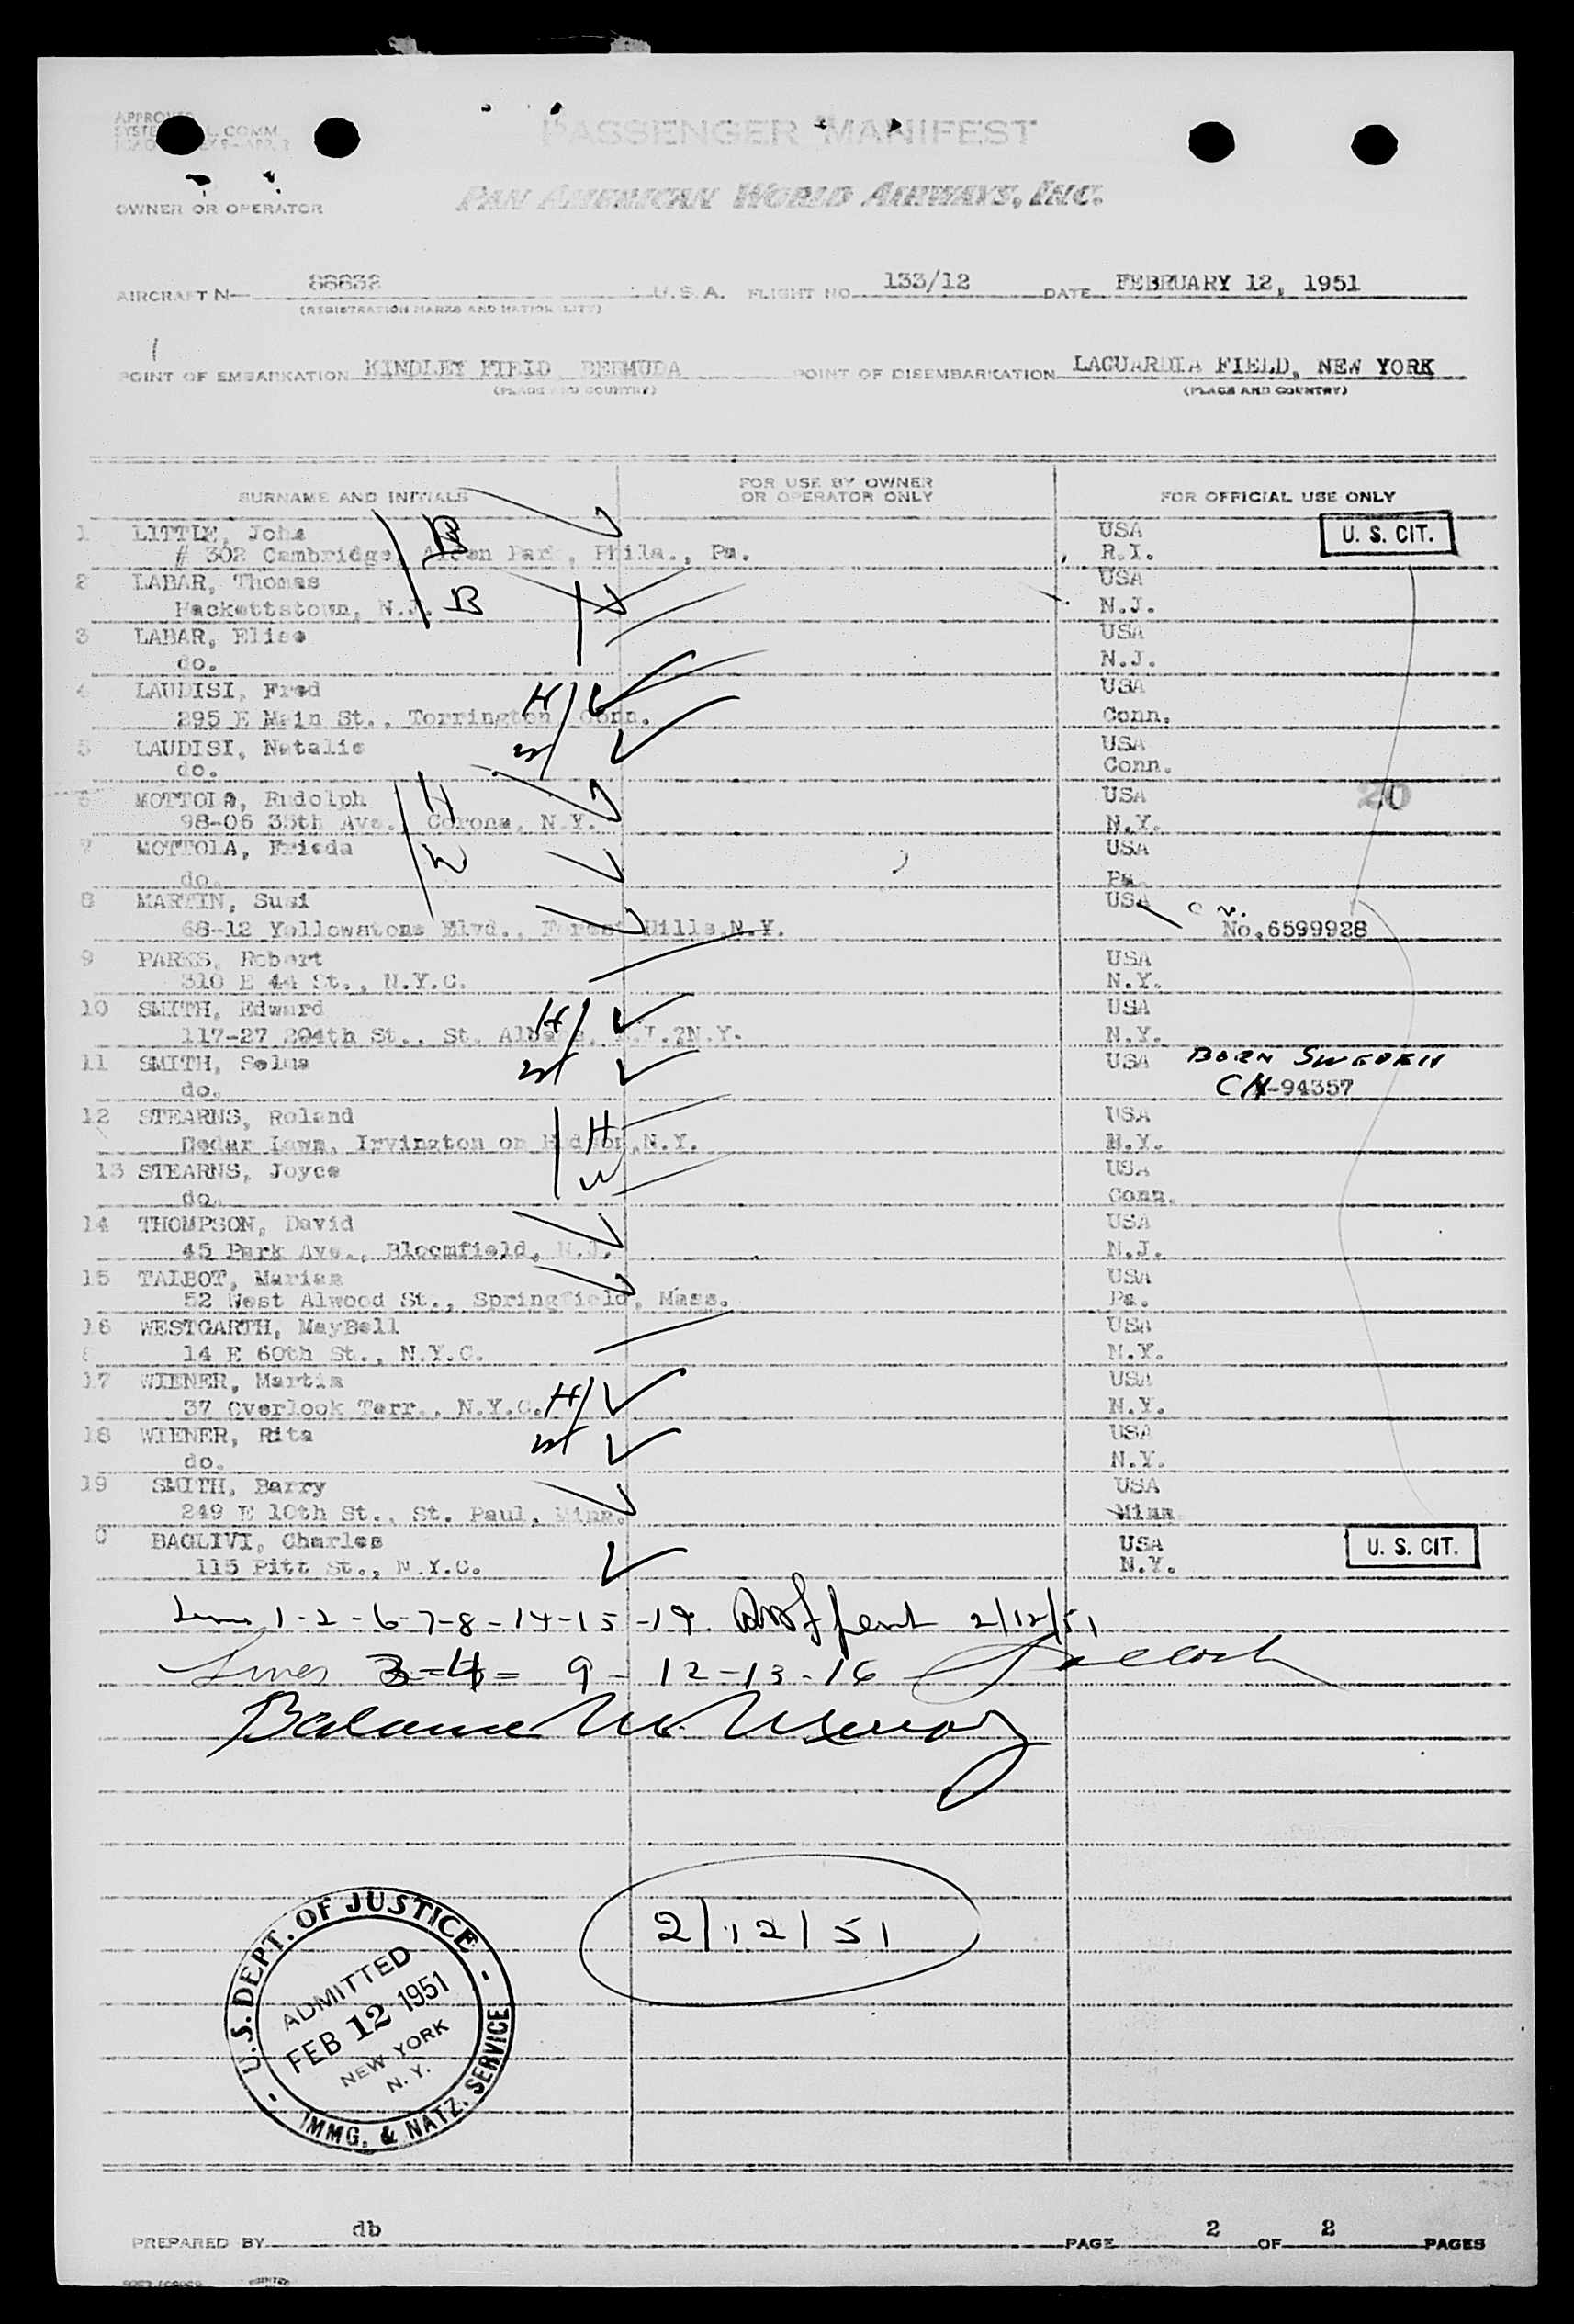 APPROVED
SYSTE L. COMM.
PASSENGER MANIFEST
OWNER OR OPERATOR PAN AMERICAN WORLD AIRWAYS, INC.
AIRCRAFT N— 88832 U. S. A. FLIGHT NO. 133/12 DATE FEBRUARY 12, 1951
(REGISTRATION MARKS AND NATIONALITY)
POINT OF EMBARKATION KINDLEY FIELD BERMUDA POINT OF DISEMBARKATION LAGUARDIA FIELD, NEW YORK
(PLACE AND COUNTRY) (PLACE AND COUNTRY)
SURNAME AND INITIALS FOR USE BY OWNER OR OPERATOR ONLY FOR OFFICIAL USE ONLY
1 LITTLE, John B USA U. S. CIT.
# 302 Cambridge, Alden Park, Phila., Pa. R.I.
2 LABAR, Thomas USA
Hackettstown, N.J. B N.J.
3 LABAR, Elise USA
do. N.J.
4 LAUDISI, Fred H USA
295 E Main St., Torrington Conn. Conn.
5 LAUDISI, Natalie W USA
do. Conn.
6 MOTTOLA, Rudolph H USA 20
98-06 35th Ave., Corona, N.Y. N.Y.
7 MOTTOLA, Frieda W USA
do. Pa.
8 MARTIN, Susi USA C N.
68-12 Yellowstone Blvd., Forest Hills,N.Y. No.6599928
9 PARKS, Robert USA
310 E 44 St., N.Y.C. N.Y.
10 SMITH, Edward H USA
117-27 204th St., St. Albans, L.I.?N.Y. N.Y.
11 SMITH, Selma W USA BORN SWEDEN
do. CN-94357
12 STEARNS, Roland H USA
Dedar Lawn, Irvington on Hudson,N.Y. N.Y.
13 STEARNS, Joyce W USA
do. Conn.
14 THOMPSON, David USA
45 Park Ave., Bloomfield, N.J. N.J.
15 TALBOT, Marian USA
52 West Alwood St., Springfield, Mass. Pa.
16 WESTGARTH, MayBell USA
14 E 60th St., N.Y.C. N.Y.
17 WIENER, Martin USA
37 Overlook Terr., N.Y.C. H N.Y.
18 WIENER, Rita W USA
do. N.Y.
19 SMITH, Barry USA
249 E 10th St., St. Paul, Minn. Minn
0 BAGLIVI, Charles USA U. S. CIT.
115 Pitt St., N.Y.C. N.Y.
Lines 1-2-6-7-8-14-15-19. 2/12/51
Lines 3-4= 9-12-13-16
Balance
2/12/51
U.S. DEPT. OF JUSTICE
ADMITTED
FEB 12 1951
NEW YORK
N. Y.
IMMG. & NATZ. SERVICE
PREPARED BY db PAGE 2 OF 2 PAGES